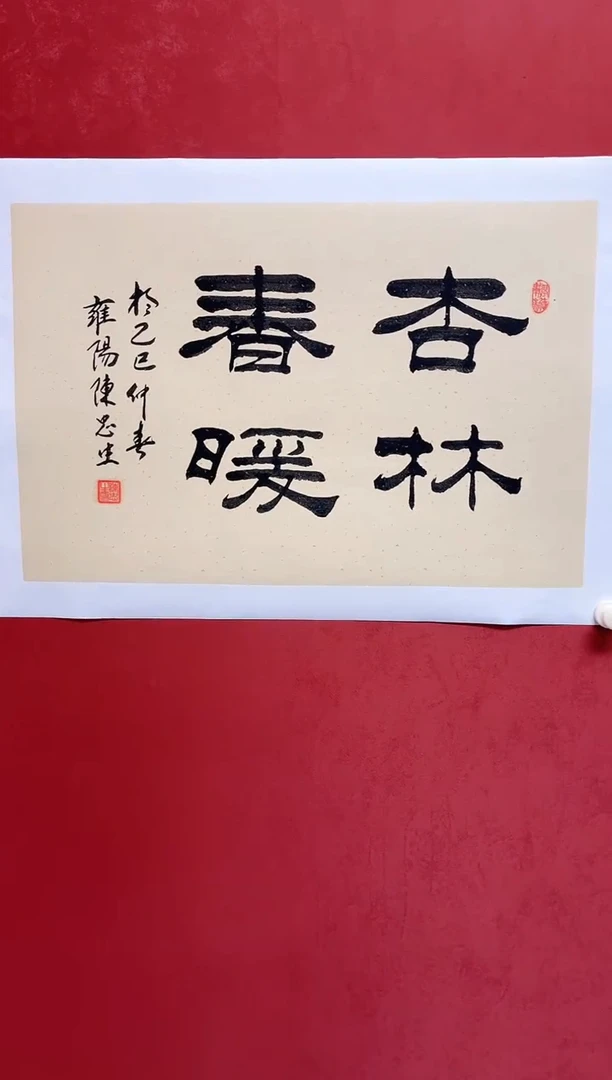 杏林
春暖
於乙巳仲春
雍陽陳忠生